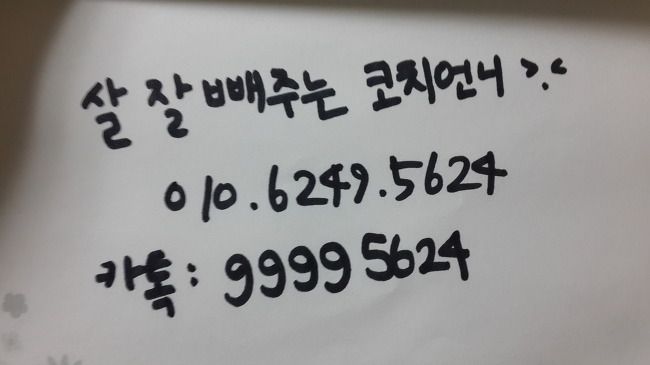 살 잘 빼주는 코치언니 >.<
010.6249.5624
카톡: 99995624